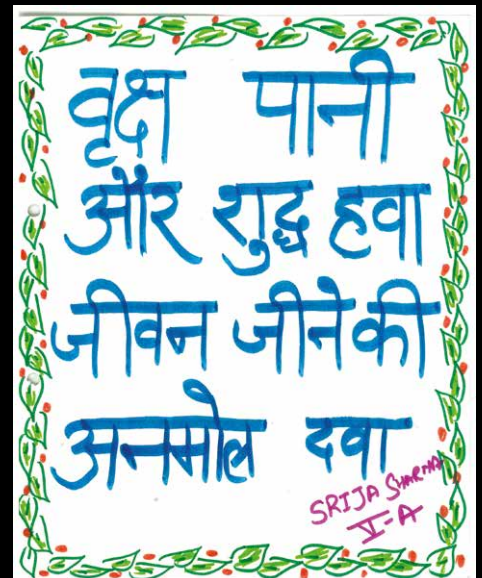 वृक्ष पानी
और शुद्ध हवा
जीवन जीने की
अनमोल दवा
SRIJA SHARMA
V-A